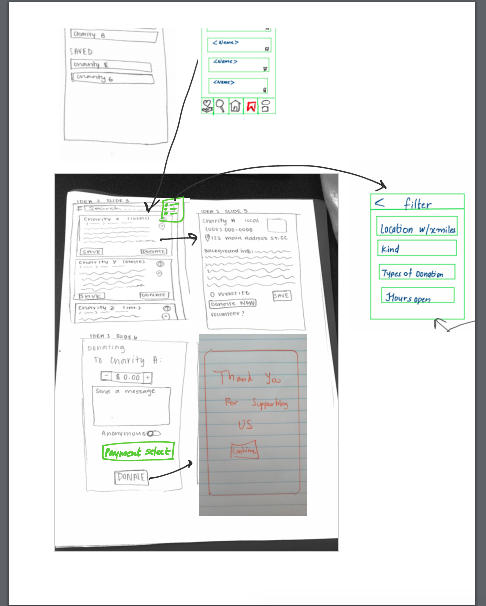 Charity B
SAVED
Charity B
Charity G
<Name>
<Name>
<Name>
IDEA 2 SLIDE 3
Search
Charity X
SAVE
DONATE
Charity Y
SAVE
DONATE
Charity Z
IDEA 2 SLIDE 5
Charity A
(000) 000-0000
123 Main Address St. CC
Background info:
WEBSITE
DONATE NOW
SAVE
VOLUNTEER?
< filter
Location w/x miles
Kind
Types of Donation
Hours open
Donating
To Charity A:
- $ 0.00 +
Send a message
Anonymous
Payment select
DONATE
Thank you
For Supporting
US